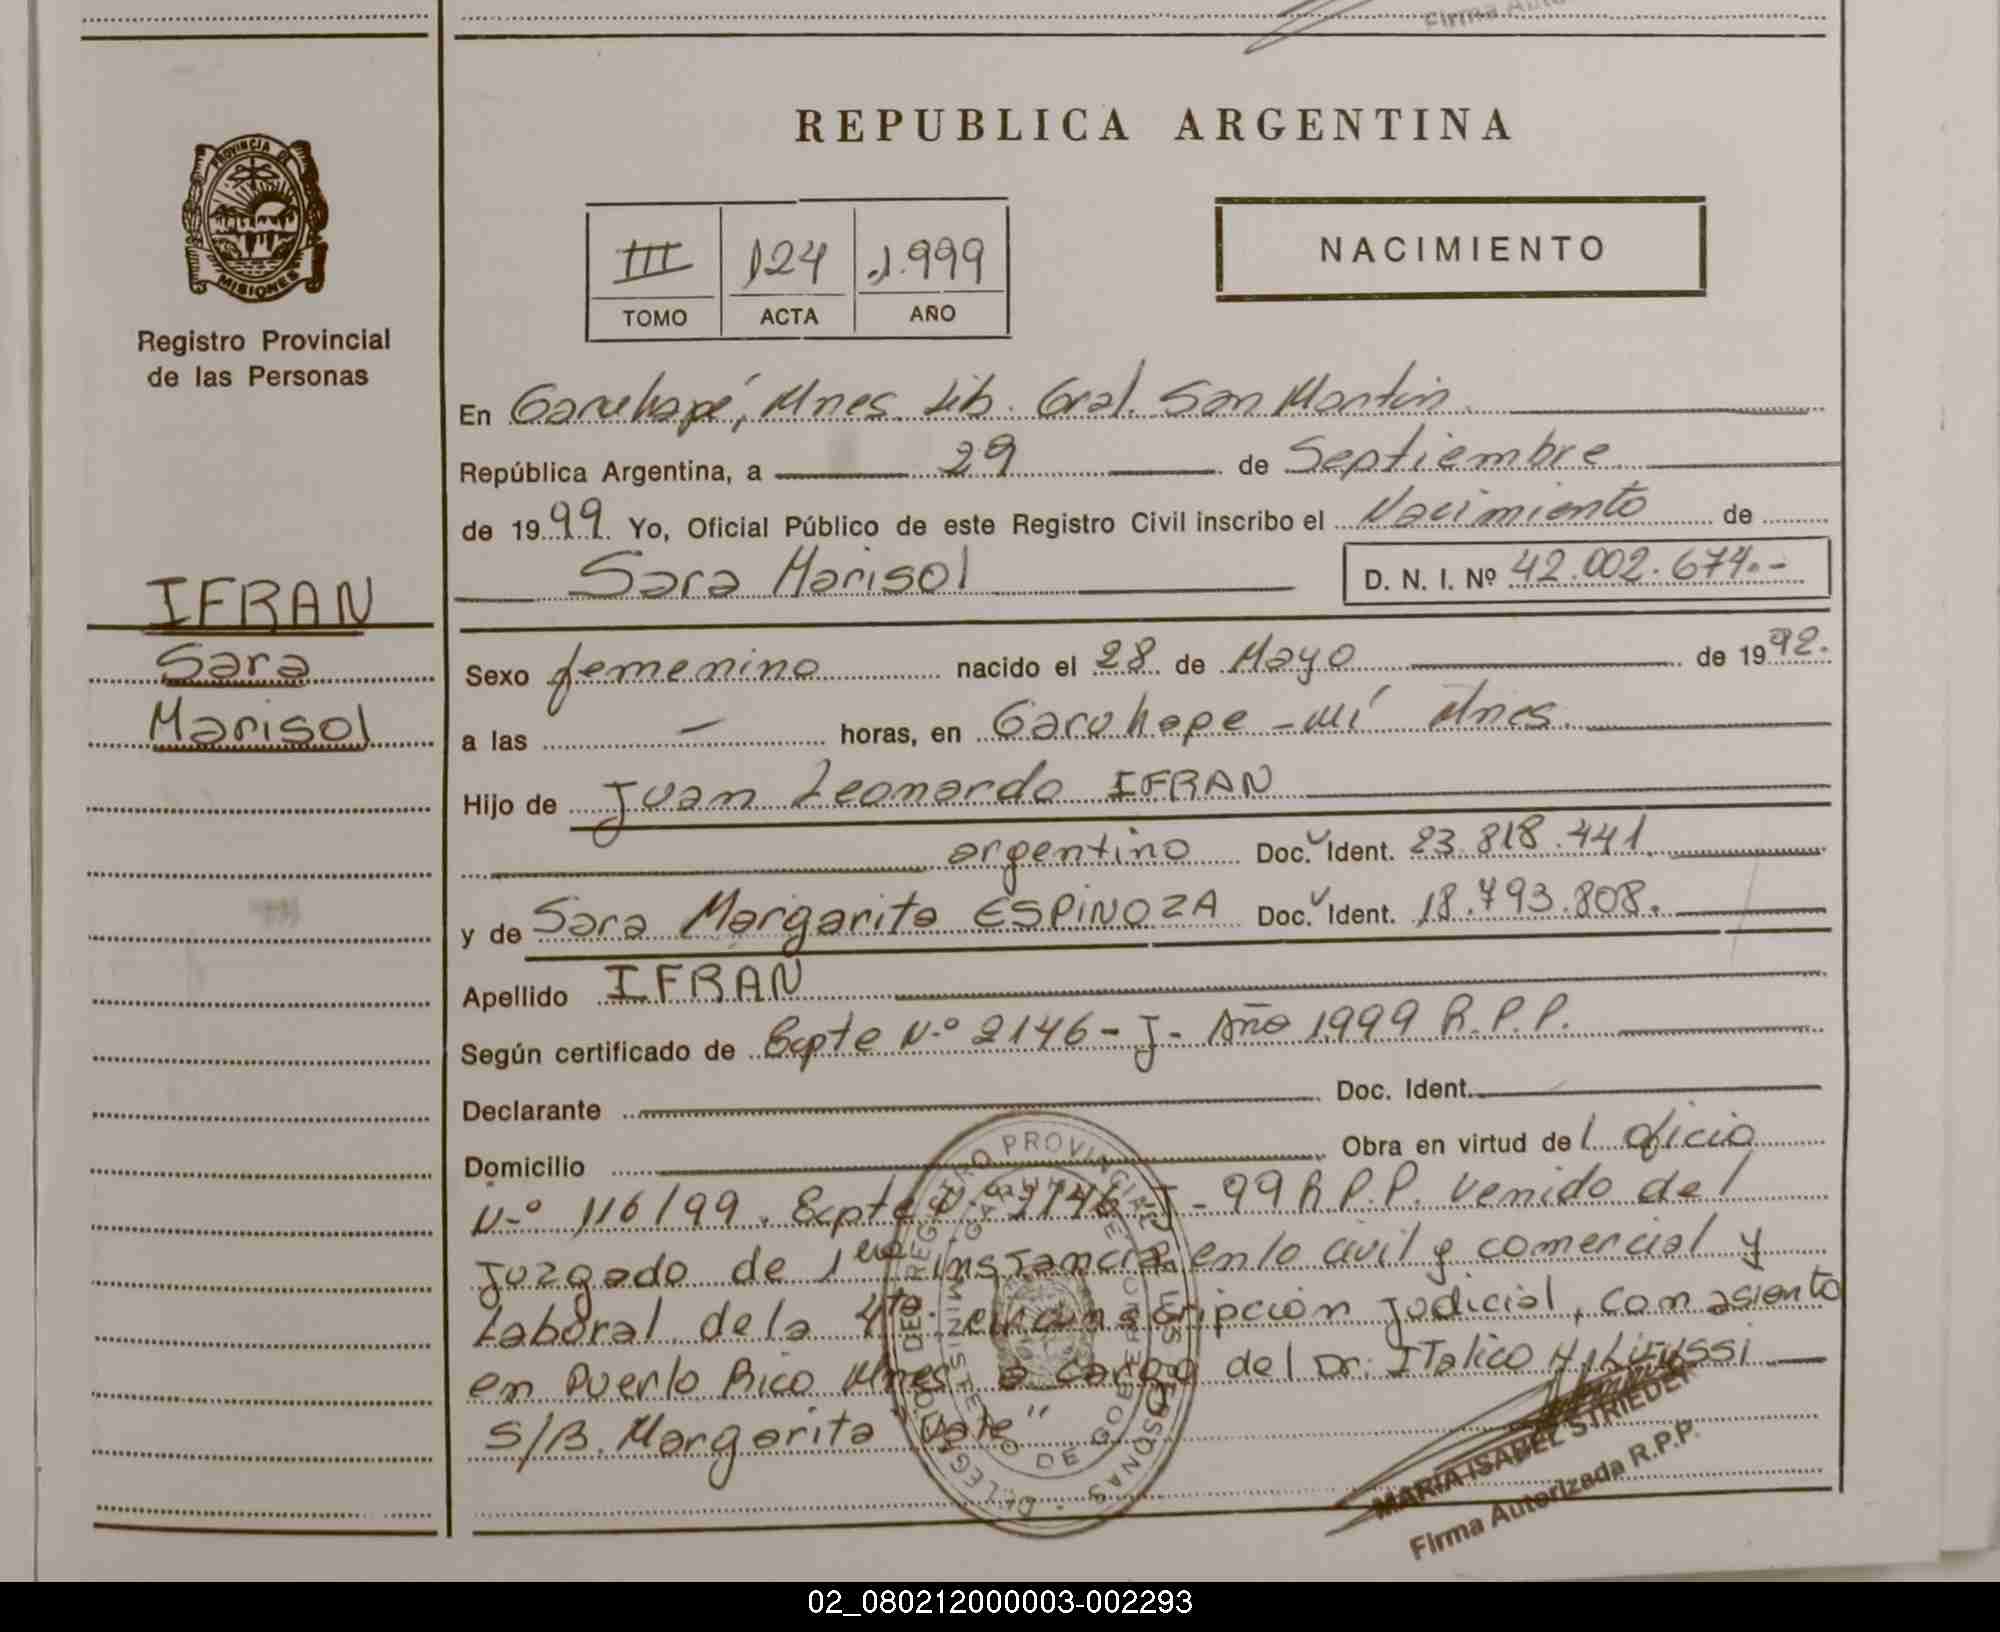 Firma
REPUBLICA ARGENTINA
PROVINCIA DE
MISIONES
Registro Provincial
de las Personas
III 124 1.999
TOMO ACTA AÑO
NACIMIENTO
En Garuhapé, Mnes. Lib. Gral. San Martin
República Argentina, a 29 de Septiembre
de 1999. Yo, Oficial Público de este Registro Civil inscribo el Nacimiento de
Sara Marisol D. N. I. Nº 42.002.674.-
IFRAN
Sara
Marisol
Sexo femenino nacido el 28 de Mayo de 1992.
a las — horas, en Garuhape-mí Mnes.
Hijo de Juan Leonardo IFRAN
argentino Doc. Ident. 23.818.441
y de Sara Margarita ESPINOZA Doc. Ident. 18.793.808.
Apellido IFRAN
Según certificado de Expte N.º 2146-J- Año 1999 R.P.P.
Declarante Doc. Ident.
Domicilio Obra en virtud del oficio
N.º 116/99. Expte N.º 2146-J-99 R.P.P. venido del
Juzgado de 1era instancia en lo civil y comercial y
Laboral de la 4ta. circunscripción judicial, con asiento
en Puerto Rico Mnes a cargo del Dr. Italico
S/B. Margarita "Vale"
MARIA ISABEL STRIEDER
Firma Autorizada R.P.P.
02_080212000003-002293